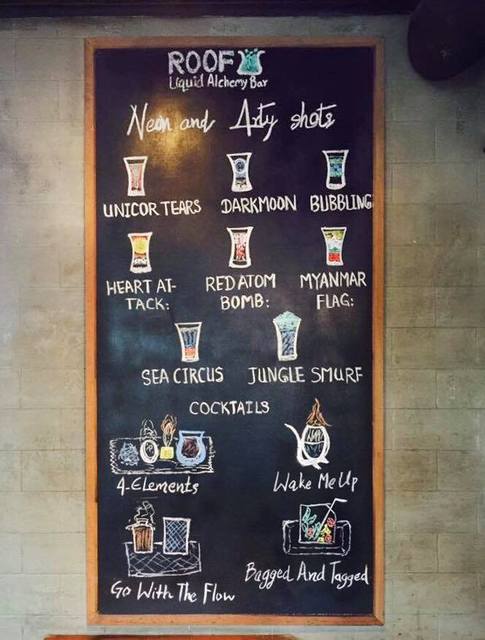 ROOF
Liquid Alchemy Bar
Neon and Arty shots
UNICOR TEARS DARKMOON BUBBLING
HEART AT- RED ATOM MYANMAR
TACK: BOMB: FLAG:
SEA CIRCUS JUNGLE SMURF
COCKTAILS
4-Elements Wake Me Up
Go With The Flow Bagged And Tagged